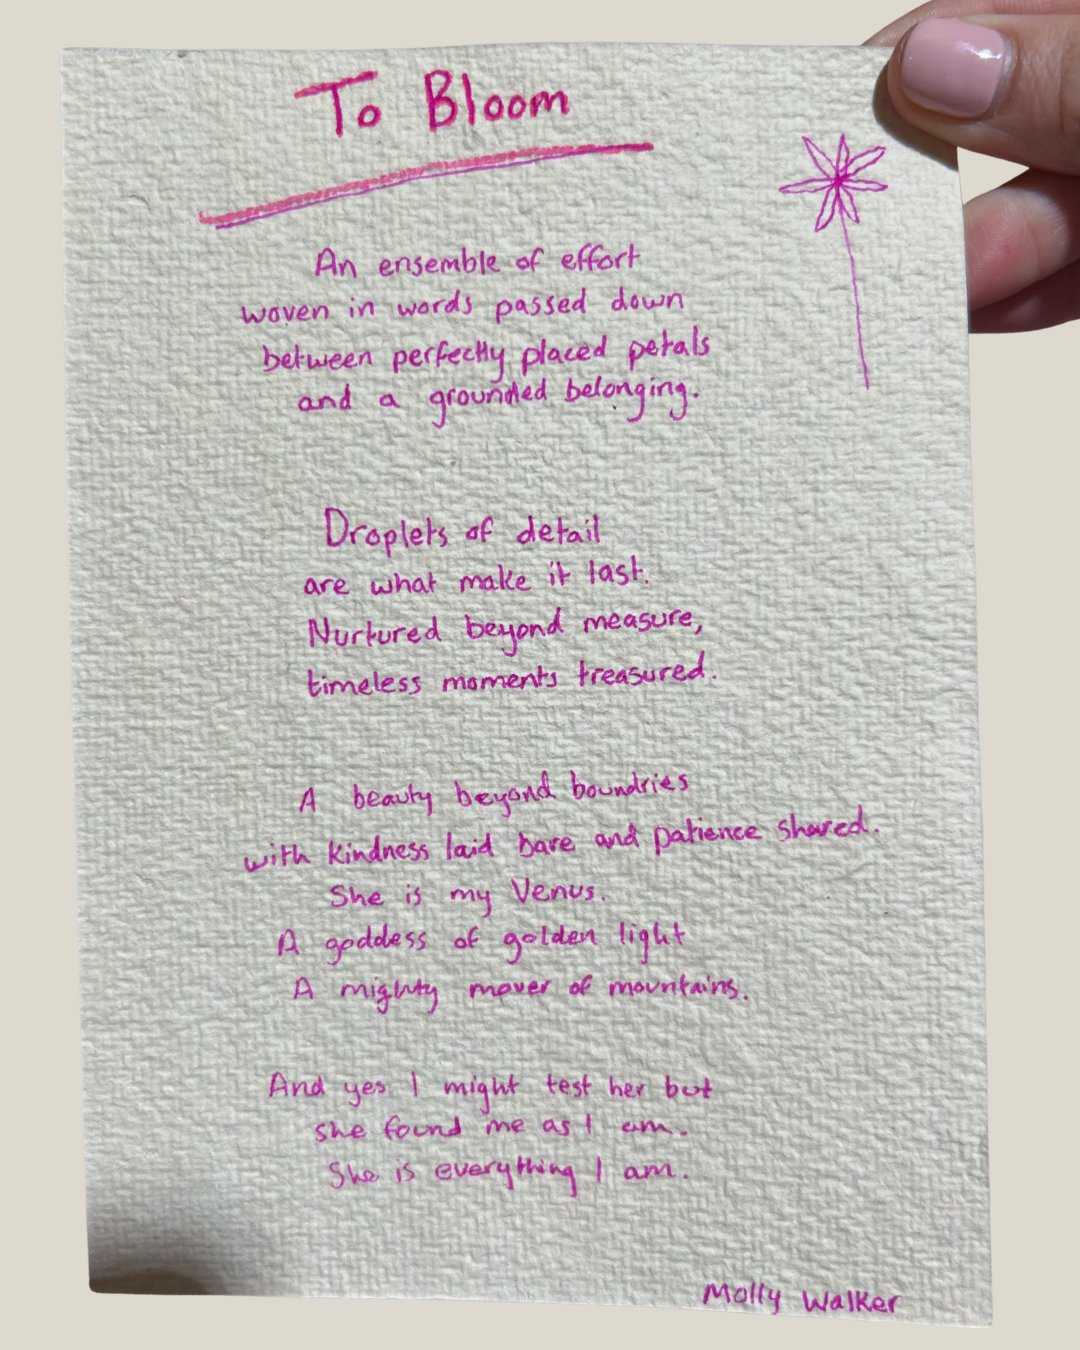 To Bloom
An ensemble of effort
woven in words passed down
between perfectly placed petals
and a grounded belonging.
Droplets of detail
are what make it last.
Nurtured beyond measure,
timeless moments treasured.
A beauty beyond boundries
with kindness laid bare and patience shared.
She is my Venus.
A goddess of golden light
A mighty mover of mountains.
And yes I might test her but
she found me as I am.
She is everything I am.
Molly Walker